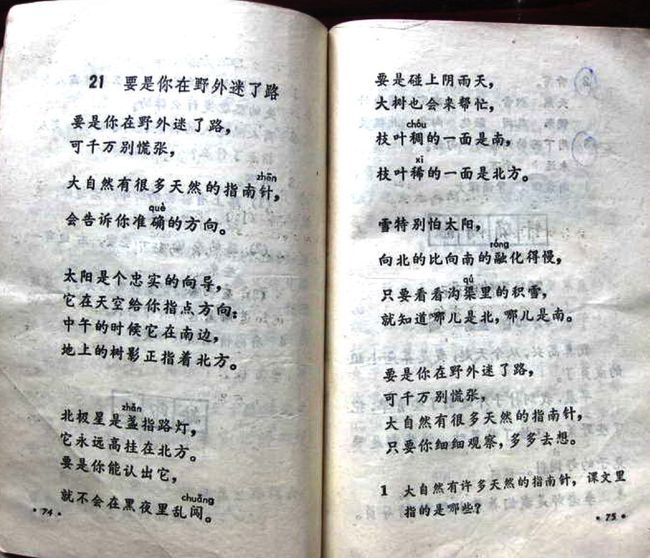 21 要是你在野外迷了路
要是你在野外迷了路，
可千万别慌张，
zhēn
大自然有很多天然的指南针，
què
会告诉你准确的方向。
太阳是个忠实的向导，
它在天空给你指点方向：
中午的时候它在南边，
地上的树影正指着北方。
zhǎn
北极星是盏指路灯，
它永远高挂在北方。
要是你能认出它，
chuǎng
就不会在黑夜里乱闯。
·74·
要是碰上阴雨天，
大树也会来帮忙，
chóu
枝叶稠的一面是南，
xī
枝叶稀的一面是北方。
雪特别怕太阳，
róng
向北的比向南的融化得慢，
qú
只要看看沟渠里的积雪，
就知道哪儿是北，哪儿是南。
要是你在野外迷了路，
可千万别慌张，
大自然有很多天然的指南针，
只要你细细观察，多多去想。
1 大自然有许多天然的指南针，课文里
指的是哪些？
·75·